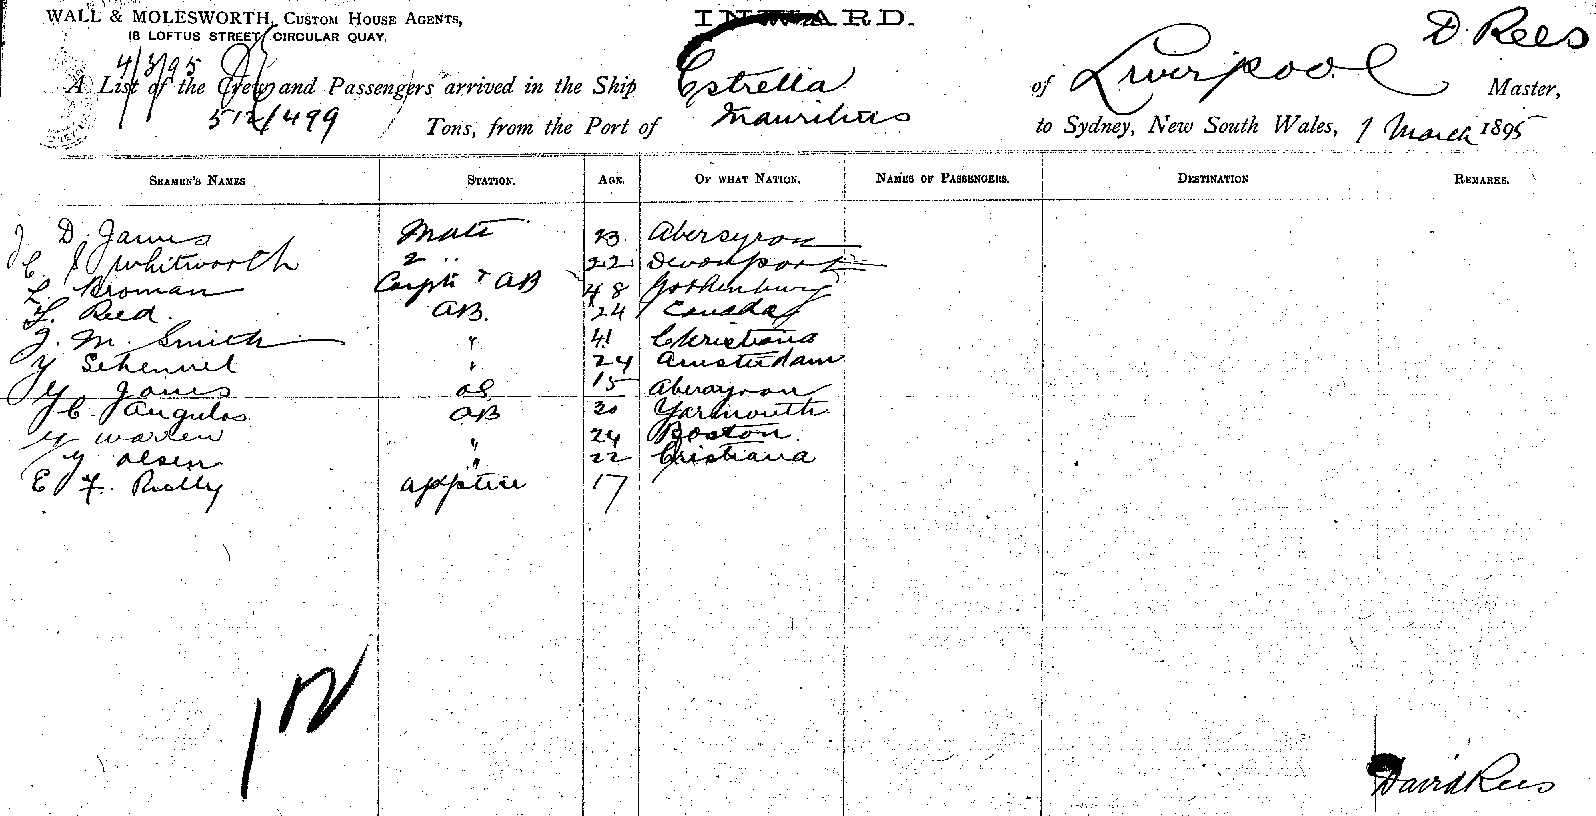 WALL & MOLESWORTH, CUSTOM HOUSE AGENTS,
18 LOFTUS STREET, CIRCULAR QUAY.
INWARD.
D. Rees
4/3/95
A List of the Crew and Passengers arrived in the Ship Estrella of Liverpool Master,
512/499 Tons, from the Port of Mauritius to Sydney, New South Wales, 1 March 1895
SEAMEN'S NAMES STATION. AGE. OF WHAT NATION. NAMES OF PASSENGERS. DESTINATION REMARKS.
D. James Mate 23 Aberayron
Whitworth 2 " 22 Devonport
L. Broman Carptr & AB 48 Gothenburg
F. Reed. AB. 24 Canada
J. M. Smith " 41 Christiana
Schennel " 24 Amsterdam
James OS 15 Aberayron
C. Angulas AB 30 Yarmouth
Warren " 24 Boston.
Olsen " 22 Cristiana
E F. Apptice 17
David Rees